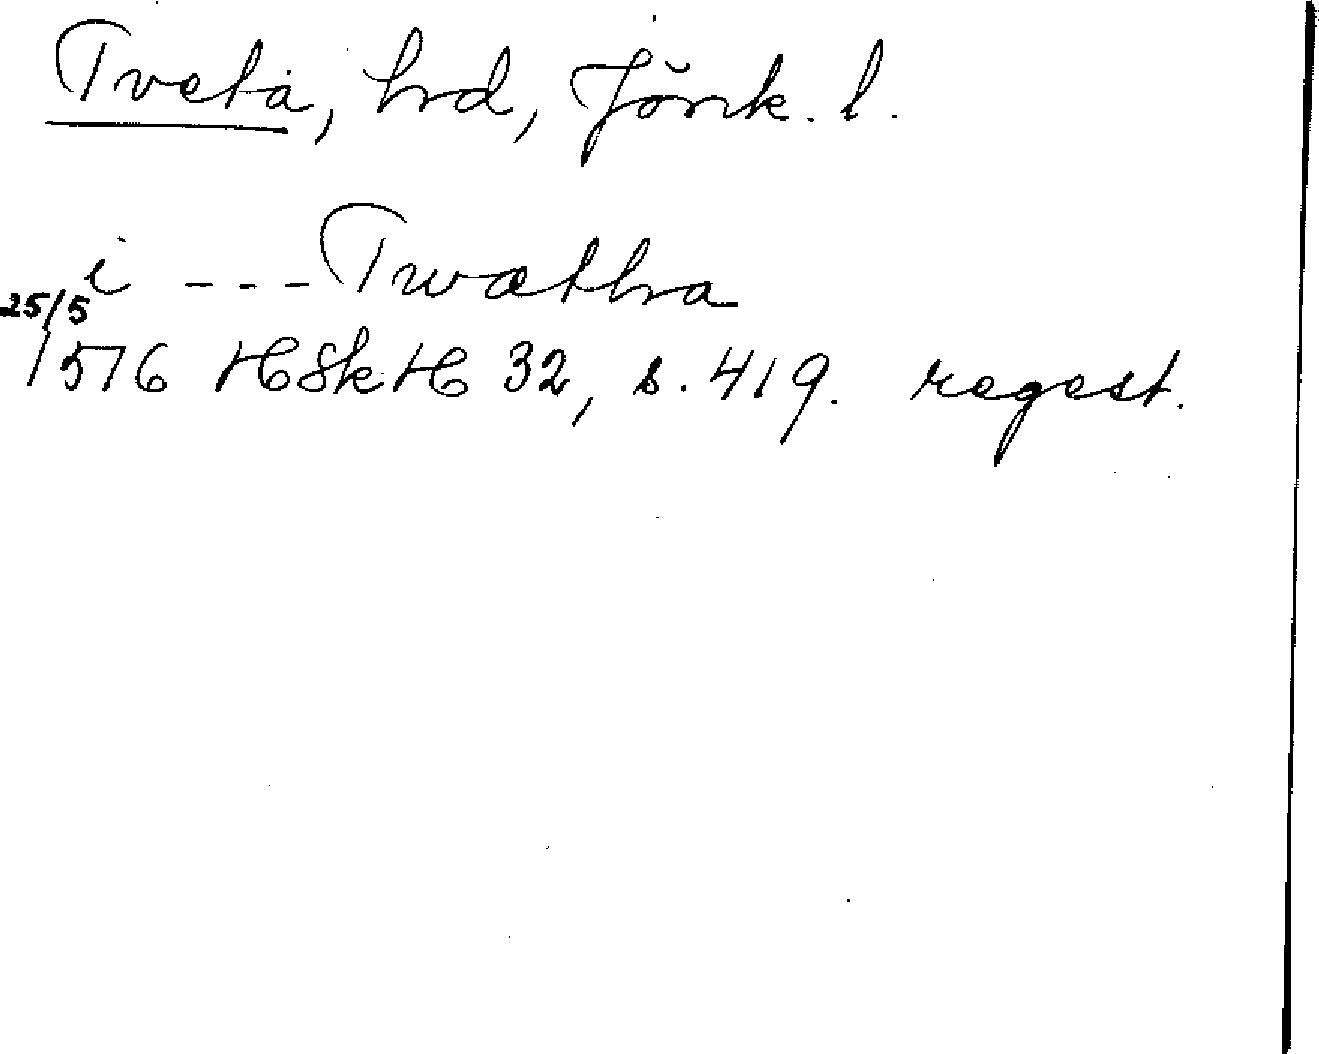 Tveta, hrd, Jönk. l.
i --- Twætha
25/5
1576 HSkH 32, s. 419. regest.